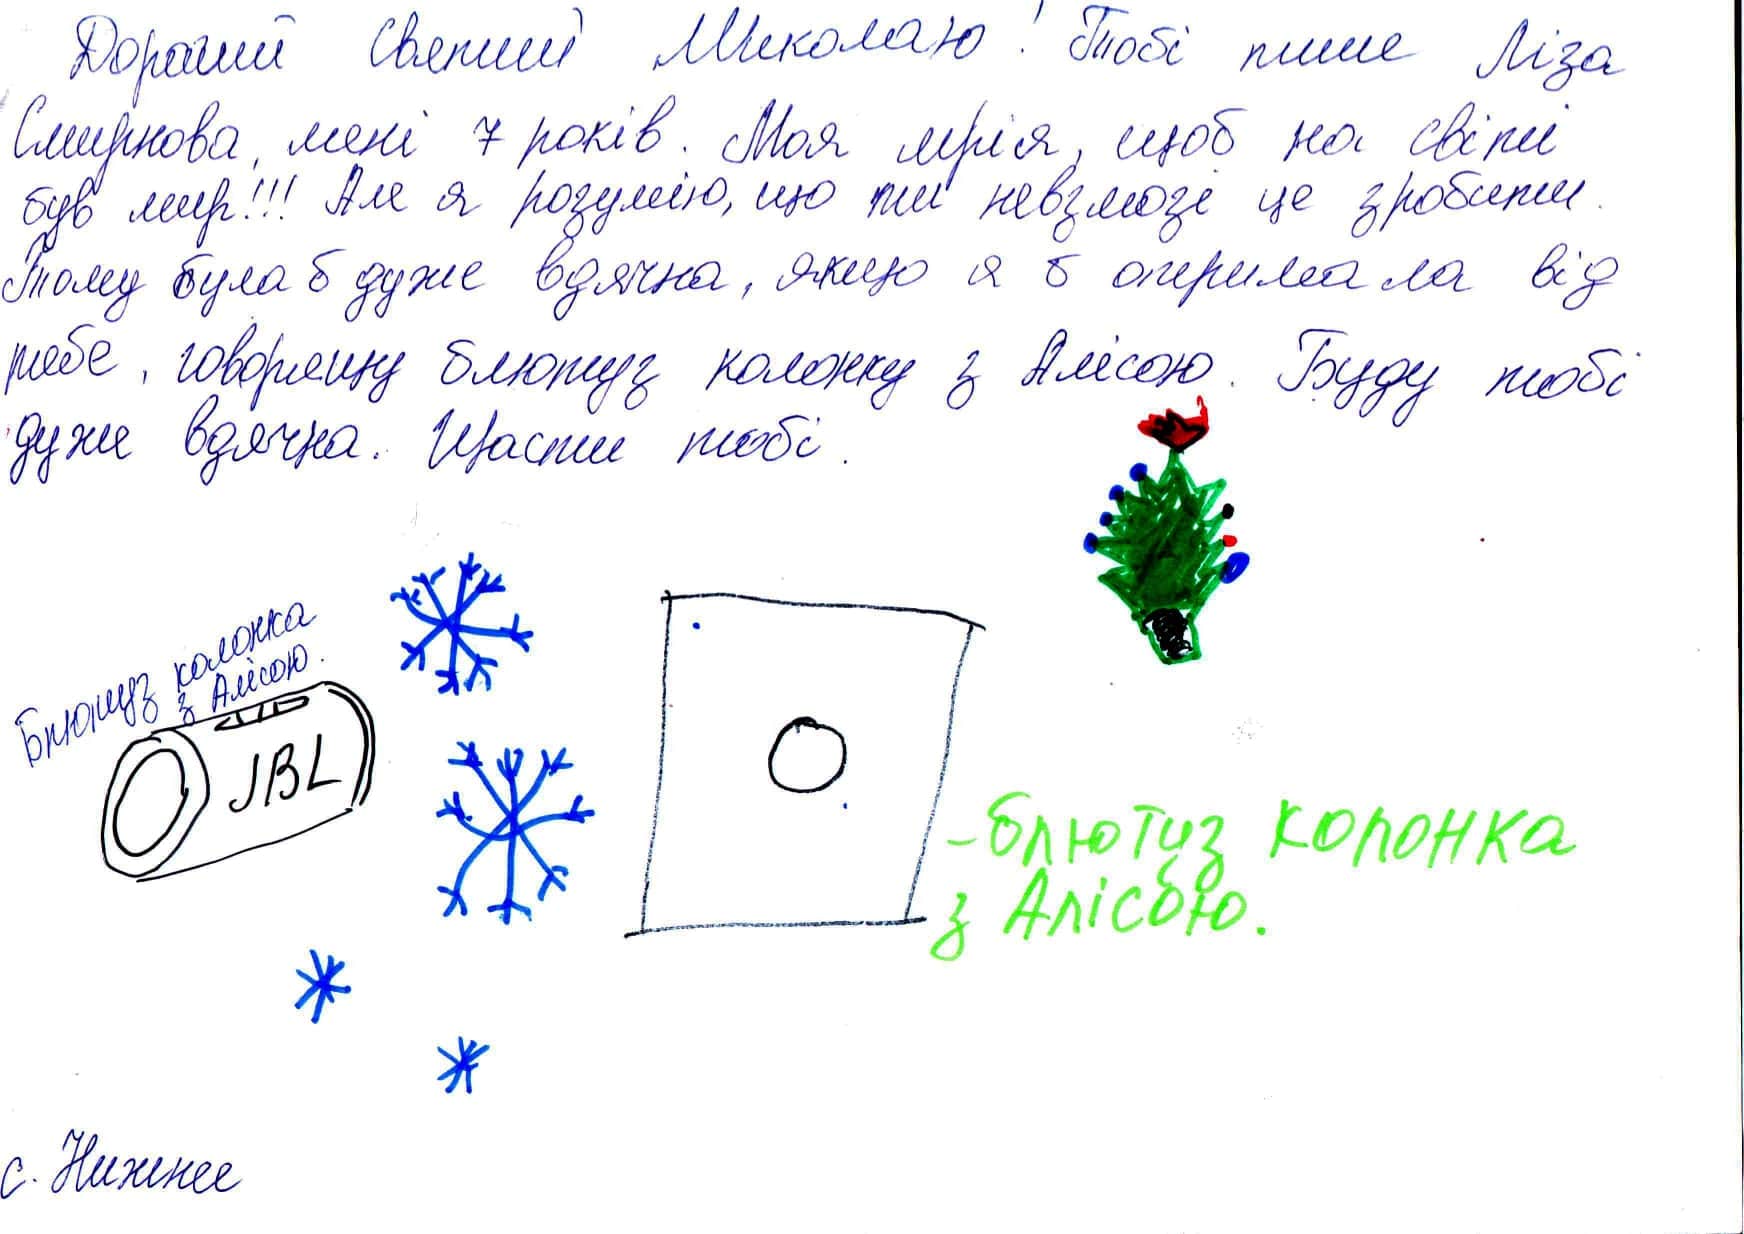 Дорогий Святий Миколаю! Тобі пише Ліза
Смирнова, мені 7 років. Моя мрія, щоб на світі
був мир!!! Але я розумію, що ти невзмозі це зробити.
Тому була б дуже вдячна, якщо я б отримала від
тебе, говорящу блютуз колонку з Алісою. Буду тобі
дуже вдячна. Щасти тобі.
Блютуз колонка
з Алісою.
JBL
-блютуз колонка
з Алісою.
с. Нижнее